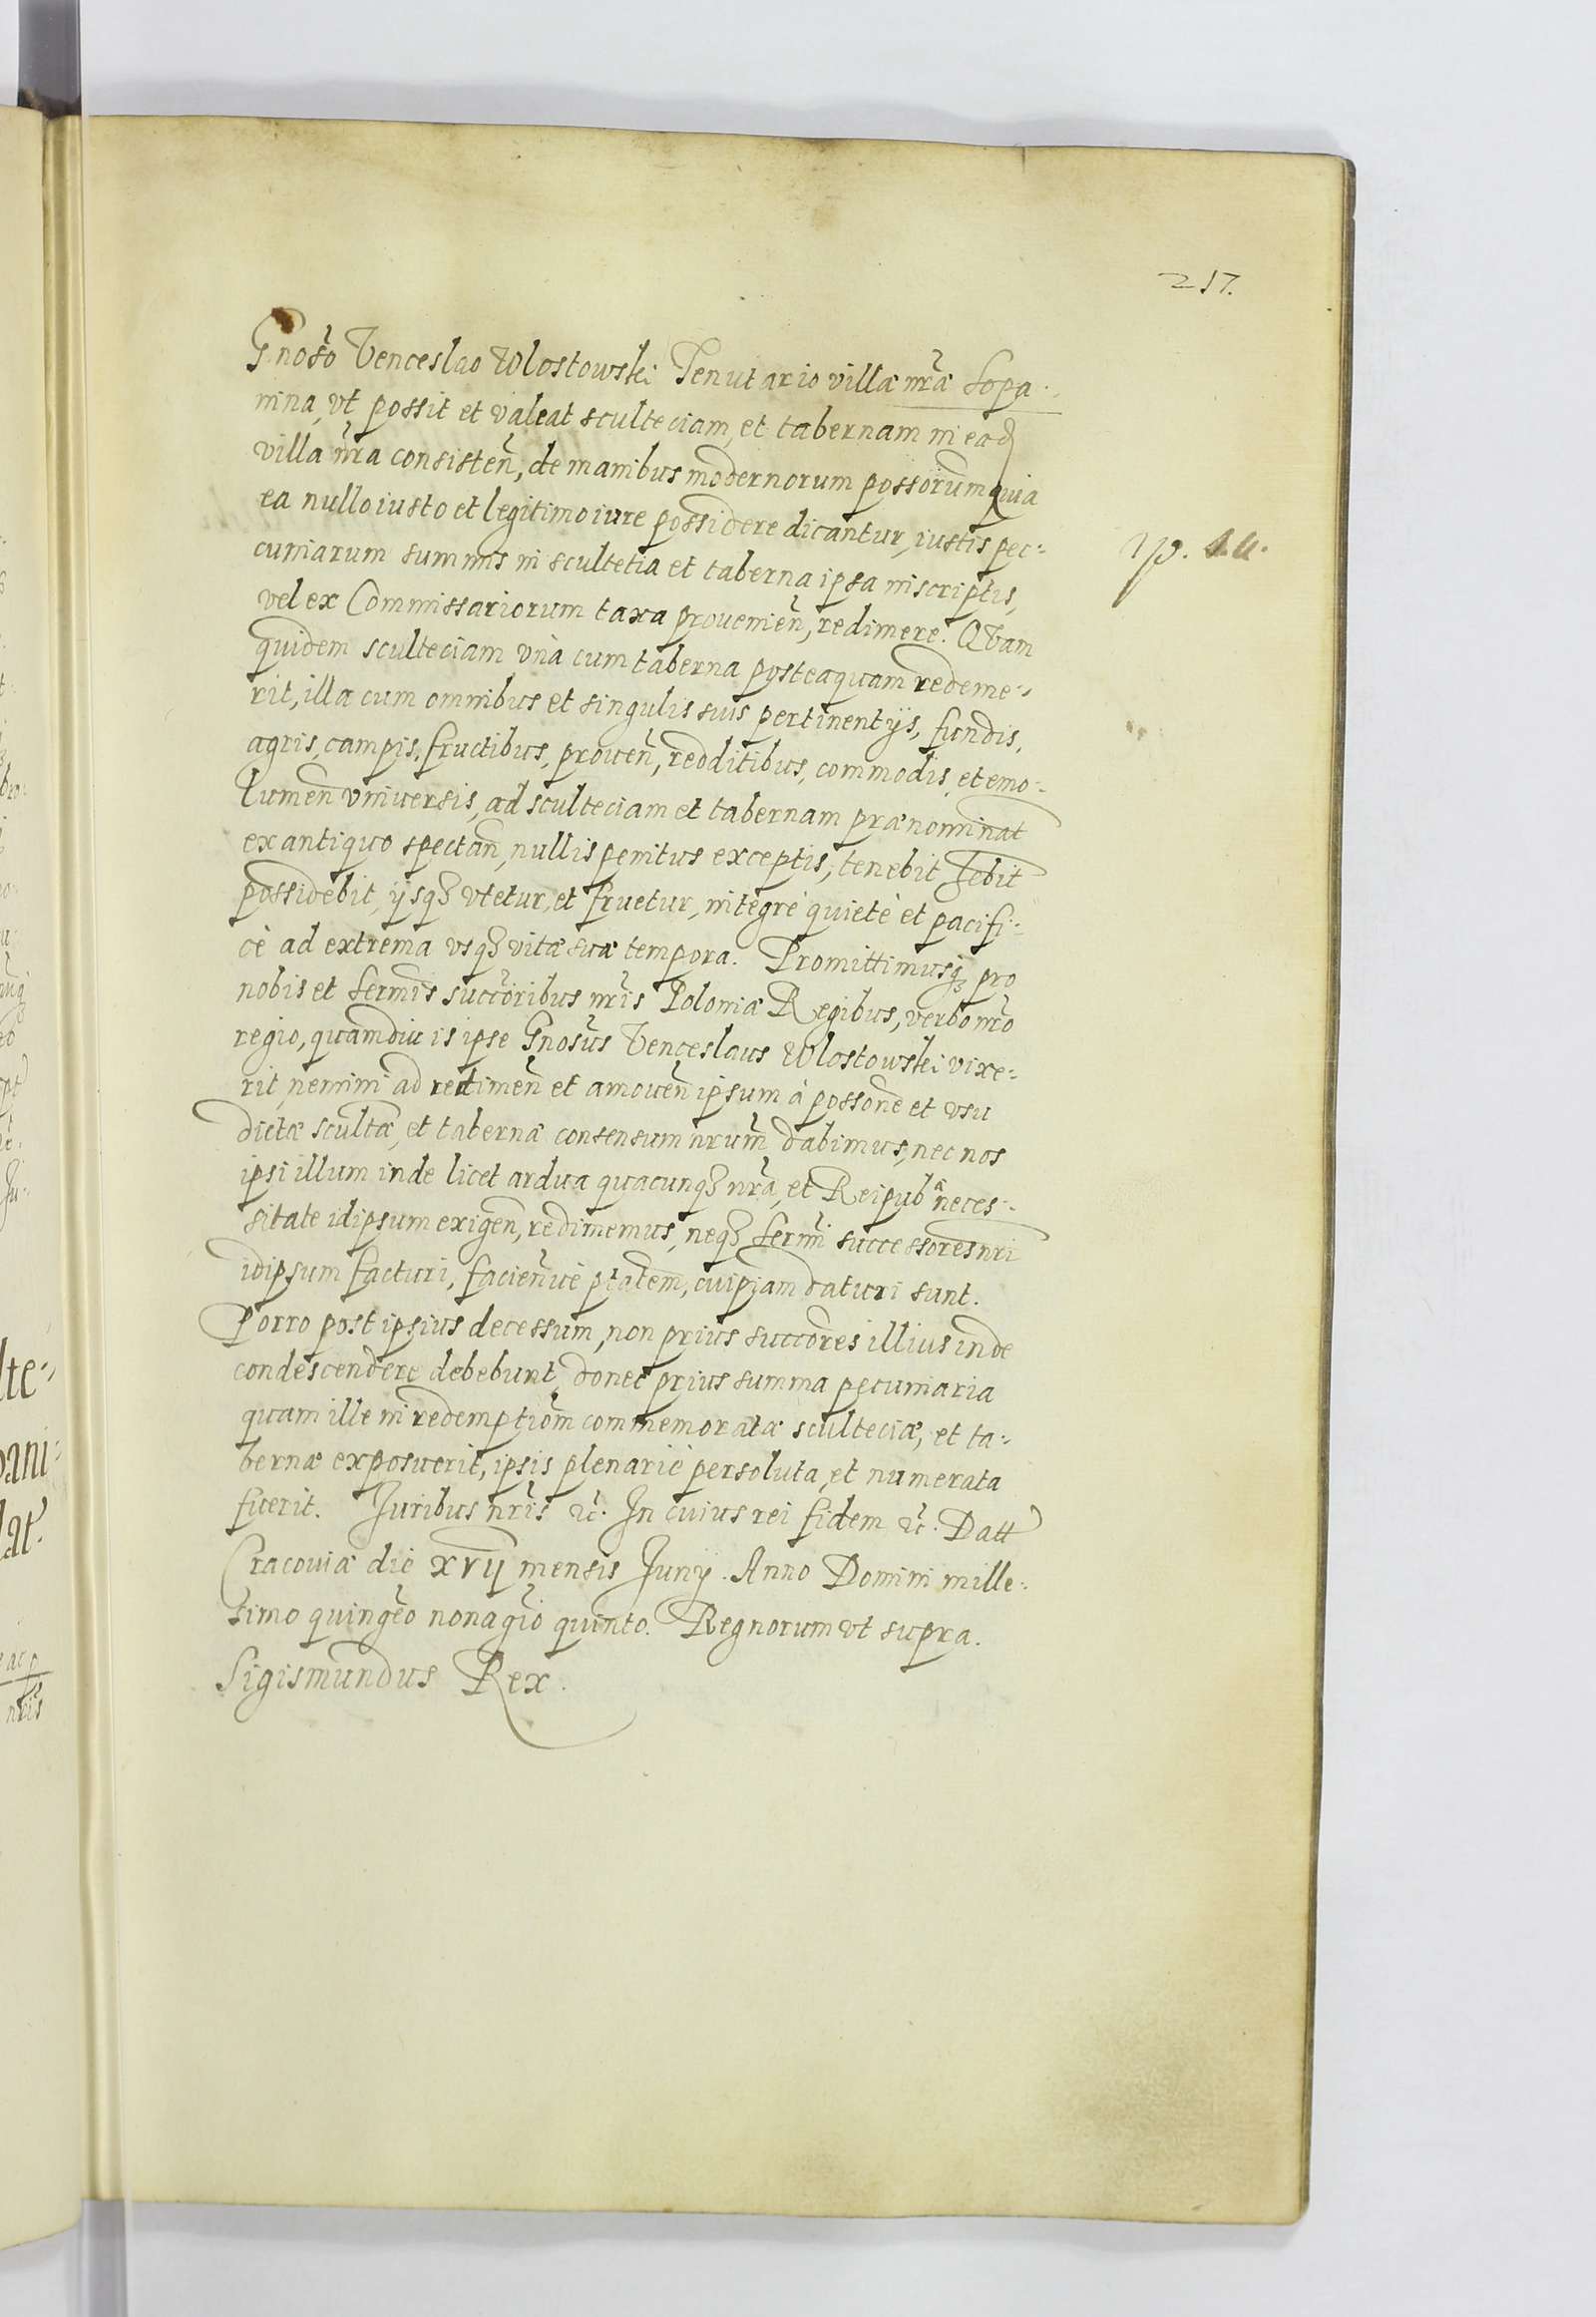 217.
Gnoso Venceslao Wlostowski Tenutario villæ nræ Sopa-
nina, vt possit et valeat sculteciam, et tabernam in ead
villa nra consisten, de manibus modernorum possorum quia
ea nullo iusto et legitimo iure possidere dicantur, iustis pec-
cuniarum summis in scultetia et taberna ipsa inscriptis,
vel ex Commissariorum taxa prouenien, redimere. QVam
quidem sculteciam vnà cum taberna posteaquam redeme-
rit, illa cum omnibus et singulis suis pertinentijs, fundis,
agris, campis, fructibus, prouen, redditibus, commodis, et emo-
lumen vniuersis, ad sculteciam et tabernam prænominat
ex antiquo spectan, nullis penitus exceptis, tenebit hebit
possidebit, ijsq3 vtetur, et fruetur, integrè quietè et pacifi-
cè ad extrema vsq3 vitæ suæ tempora. Promittimusq3 pro
nobis et Sermis succoribus nris Poloniæ Regibus, verbo nro
regio, quamdiu is ipse Gnosus Venceslaus Wlostowski vixe-
rit, nemini ad redimen et amouen ipsum à possone et vsu
dictæ scultæ, et tabernæ consensum nrum dabimus, nec nos
ipsi illum inde licet ardua quacunq3 nra, et Reipub neces-
sitate idipsum exigen, redimemus, neq3 Sermi successores nri
idipsum facturi, faciendiuè ptatem, cuipiam daturi sunt.
Porro post ipsius decessum, non prius succores illius inde
condescendere debebunt, donec prius summa pecuniaria
quam ille in redemptiom commemoratæ sculteciæ, et ta-
bernæ exposuerit, ipsis plenariè persoluta, et numerata
fuerit. Juribus nris &c. In cuius rei fidem &c. Datt
Cracouiæ die XVII mensis Junij. Anno Domini mille-
simo quingeo nonagio quinto. Regnorum vt supra.
Sigismundus Rex.